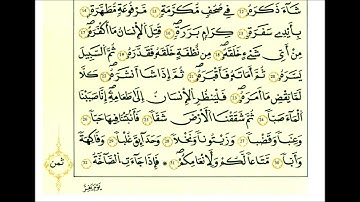 شَآءَ ذَكَرَهُۥ فِے صُحُفٖ مُّكَرَّمَةٖ مَّرْفُوعَةٖ مُّطَهَّرَةِۢ
بِأَيْدِے سَفَرَةٖ كِرَامِۢ بَرَرَةٖ قُتِلَ ٱلْإِنسَٰنُ مَآ أَكْفَرَهُۥ
مِنْ أَيِّ شَےْءٍ خَلَقَهُۥ مِن نُّطْفَةٍ خَلَقَهُۥ فَقَدَّرَهُۥ ثُمَّ ٱلسَّبِيلَ
يَسَّرَهُۥ ثُمَّ أَمَاتَهُۥ فَأَقْبَرَهُۥ ثُمَّ إِذَا شَآءَ انشَرَهُۥ كَلَّا
لَمَّا يَقْضِ مَآ أَمَرَهُۥ فَلْيَنظُرِ ٱلْإِنسَٰنُ إِلَىٰ طَعَامِهِۦٓ إِنَّا صَبَبْنَا
ٱلْمَآءَ صَبّٗا ثُمَّ شَقَقْنَا ٱلْأَرْضَ شَقّٗا فَأَنۢبَتْنَا فِيهَا حَبّٗا
وَعِنَبٗا وَقَضْبٗا وَزَيْتُونٗا وَنَخْلٗا وَحَدَآئِقَ غُلْبٗا وَفَٰكِهَةٗ
وَأَبّٗا مَّتَٰعٗا لَّكُمْ وَلِأَنْعَٰمِكُمْ فَإِذَا جَآءَتِ ٱلصَّآخَّةُ
ثمن
يَوْمَ يَفِرُّ